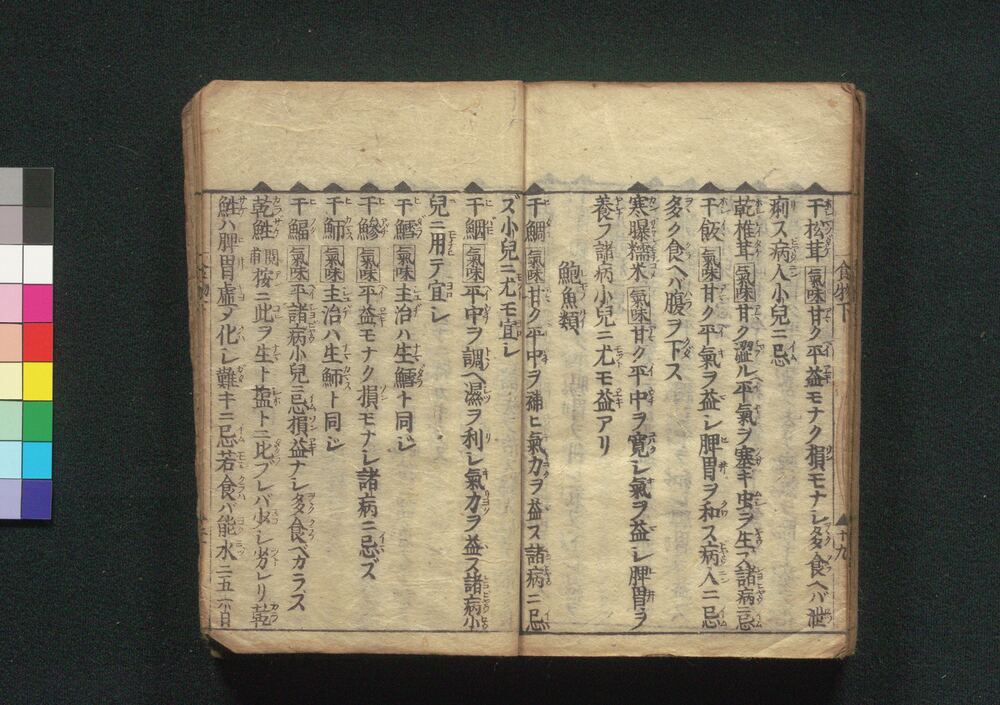 干松茸 氣味甘ク平益モナク損モナシ多食ヘバ泄
痢ス病人小兒ニ忌
乾椎茸 氣味甘ク澀ル平氣ヲ塞キ虫ヲ生ス諸病ニ忌
干飯 氣味甘ク平氣ヲ益シ脾胃ヲ和ス病人ニ忌
多ク食ヘバ腹ヲ下ス
寒曝糯米 氣味甘ク平中ヲ寛シ氣ヲ益シ脾胃ヲ
養フ諸病小兒ニ尤モ益アリ
鮑魚類
干鯛 氣味甘ク平中ヲ補ヒ氣力ヲ益ス諸病ニ忌
ズ小兒ニ尤モ宜シ
干鯝 氣味平中ヲ調ヘ濕ヲ利シ氣力ヲ益ス諸病小
兒ニ用テ宜シ
干鱈 氣味主治ハ生鱈ト同シ
干鯵 氣味平益モナク損モナシ諸病ニ忌ズ
干魳 氣味主治ハ生魳ト同シ
干鰏 氣味平諸病小兒ニ忌損益ナシ多食ベカラス
乾鮭 閲甫按ニ此ヲ生ト塩トニ比フレバ少シ劣レリ乾
鮭ハ脾胃虚ノ化シ難キニ忌若食バ能水ニ五六日
食物下
十九